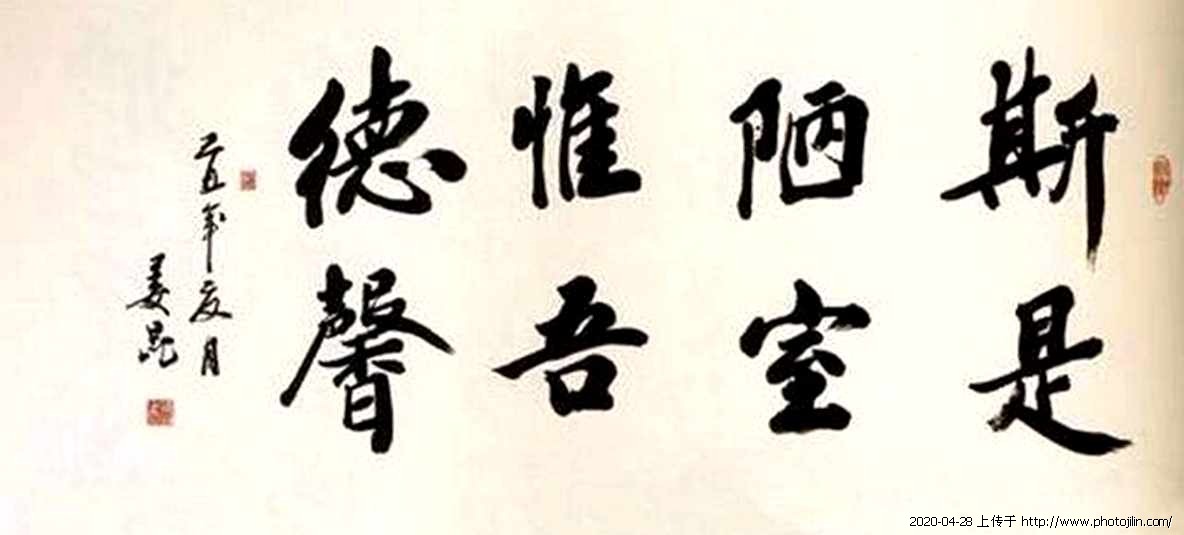 斯是
陋室
惟吾
德馨
二〇五年夏月
姜昆
2020-04-28 上传于 http://www.photojilin.com/